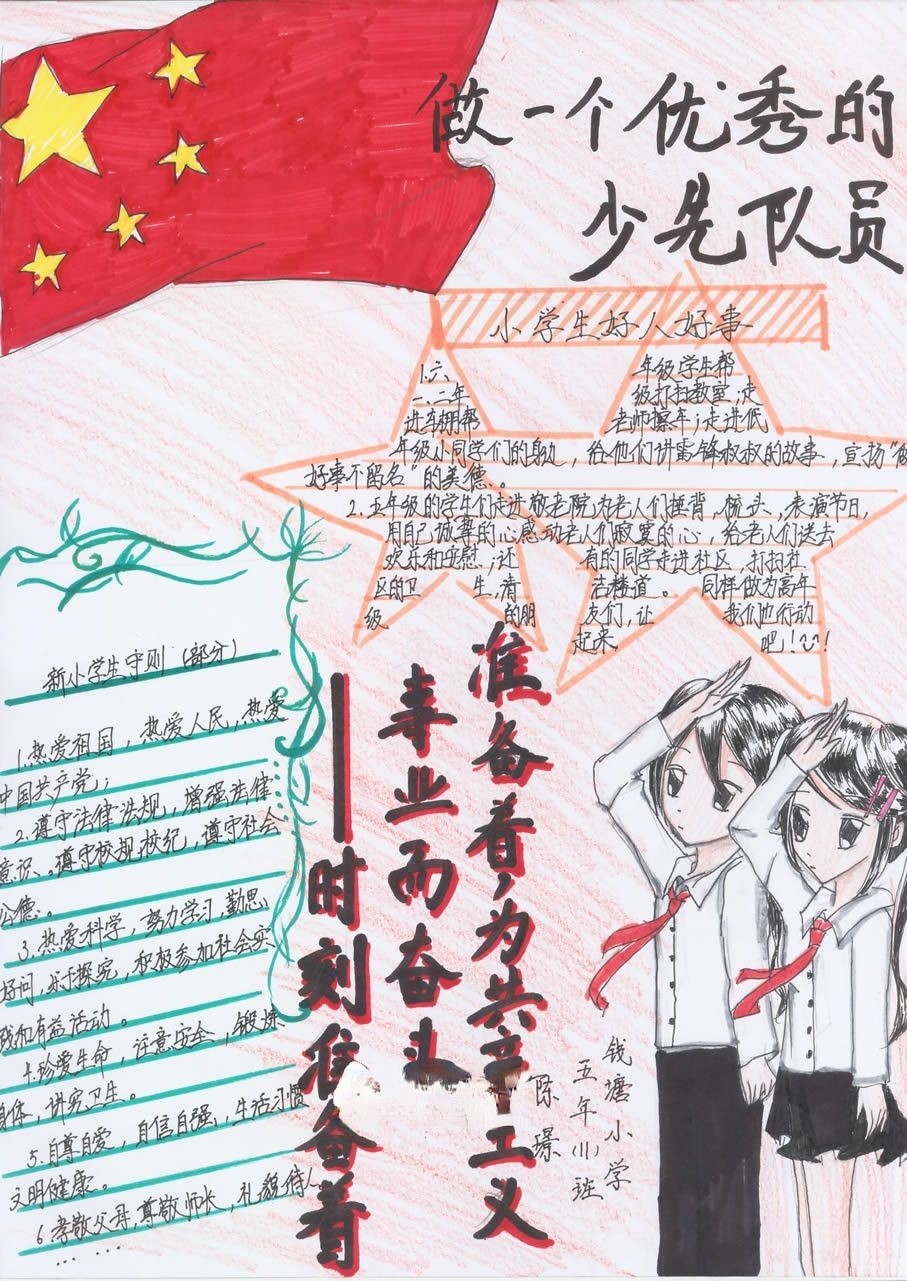 做一个优秀的
少先队员
小学生好人好事
1.六 年级学生帮
一、二年 级打扫教室;走
进车棚帮 老师擦车;走进低
年级小同学们的身边,给他们讲雷锋叔叔的故事,宣扬“做
好事不留名”的美德。
2.五年级的学生们走进敬老院为老人们捶背,梳头,表演节目,
用自己诚挚的心感动老人们寂寞的心,给老人们送去
欢乐和安慰;还 有的同学走进社区,打扫社
区的卫 生,清 洁楼道。 同样做为高年
级 的朋 友们,让 我们也行动
起来 吧!
新小学生守则(部分)
1.热爱祖国,热爱人民,热爱
中国共产党;
2.遵守法律法规,增强法律
意识。遵守校规校纪,遵守社会
公德。
3.热爱科学,努力学习,勤思
好问,乐于探究,积极参加社会实
践和有益活动。
4.珍爱生命,注意安全,锻炼
身体,讲究卫生。
5.自尊自爱,自信自强,生活习惯
文明健康。
6.孝敬父母,尊敬师长,礼貌待人
……
准备着,为共产主义
事业而奋斗
——时刻准备着
钱塘小学
五年(1)班
陈璟